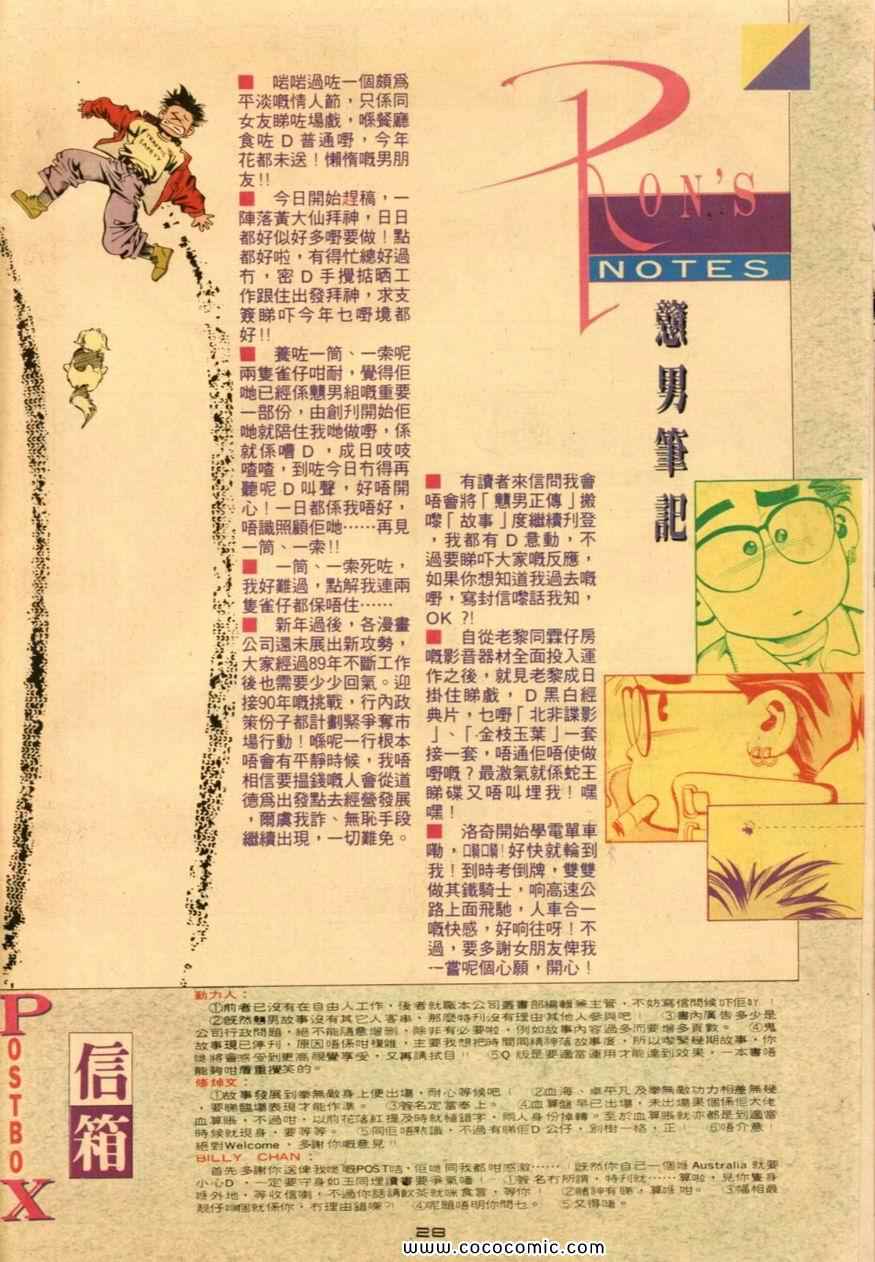 RON'S
NOTES
戇男筆記
■ 啱啱過咗一個頗爲
平淡嘅情人節，只係同
女友睇咗場戲，喺餐廳
食咗 D 普通嘢，今年
花都未送！懶惰嘅男朋
友!!
■ 今日開始趕稿，一
陣落黃大仙拜神，日日
都好似好多嘢要做！點
都好啦，有得忙總好過
冇，密 D 手攪掂晒工
作跟住出發拜神，求支
簽睇吓今年乜嘢境都
好!!
■ 養咗一筒、一索呢
兩隻雀仔咁耐，覺得佢
哋已經係戇男組嘅重要
一部份，由創刋開始佢
哋就陪住我哋做嘢，係
就係嘈 D，成日吱吱
喳喳，到咗今日冇得再
聽呢 D 叫聲，好唔開
心！一日都係我唔好，
唔識照顧佢哋……再見
一筒、一索!!
■ 一筒、一索死咗，
我好難過，點解我連兩
隻雀仔都保唔住……
■ 新年過後，各漫畫
公司還未展出新攻勢，
大家經過89年不斷工作
後也需要少少回氣。迎
接90年嘅挑戰，行內政
策份子都計劃緊爭奪市
場行動！喺呢一行根本
唔會有平靜時候，我唔
相信要搵錢嘅人會從道
德爲出發點去經營發展
，爾虞我詐、無恥手段
繼續出現，一切難免。
■ 有讀者來信問我會
唔會將「戇男正傳」搬
嚟「故事」度繼續刋登
，我都有 D 意動，不
過要睇吓大家嘅反應，
如果你想知道我過去嘅
嘢，寫封信嚟話我知，
OK ?!
■ 自從老黎同霖仔房
嘅影音器材全面投入運
作之後，就見老黎成日
掛住睇戲，D 黑白經
典片，乜嘢「北非諜影
」、「金枝玉葉」一套
接一套，唔通佢唔使做
嘢嘅？最激氣就係蛇王
睇碟又唔叫埋我！嘿
嘿！
■ 洛奇開始學電單車
嘞，嗚嗚！好快就輪到
我！到時考倒牌，雙雙
做其鐵騎士，响高速公
路上面飛馳，人車合一
嘅快感，好响往呀！不
過，要多謝女朋友俾我
一嘗呢個心願，開心！
TRAFFIC
SAFETY
POSTBOX
信箱
動力人：
①前者已沒有在自由人工作，後者就職本公司叢書部編輯兼主管，不妨寫信問候吓佢
②既然戇男故事沒有其它人客串，那麼特刋沒有理由其他人參與吧！ ③書內廣告多少是
公司行政問題，絕不能隨意增刪，除非有必要啦，例如故事內容過多而要增多頁數。 ④鬼
故事現已停刋，原因唔係咁複雜，主要我想把時間同精神落故事度，所以嚟緊幾期故事，你
哋將會感受到更高視覺享受，又再請拭目!! ⑤Q 版是要適當運用才能達到效果，一本書唔
能夠咁着重攪笑的。
①故事發展到拳無敵身上便出場，耐心等候吧！ ②血海、卓平凡及拳無敵功力相差無幾
，要睇臨場表現才能作準。 ③簽名定當奉上。 ④血算盤早已出場，未出場果個係佢大佬
血算賬，不過咁，以前花落紅提及時就植錯字，兩人身份掉轉。至於血算賬就亦都是到適當
時候就現身，要等等。 ⑤同佢唔熟識，不過有睇佢 D 公仔，別樹一格，正！ ⑥唔介意！
絕對Welcome，多謝你嘅意見!!
BILLY CHAN：
首先多謝你送俾我哋嘅POST咭，佢哋同我都咁感激……！既然你自己一個喺 Australia 就要
小心D，一定要守身如玉同埋讀書要爭氣噃！ ①簽名冇所謂，特刋就……算啦，見你隻身
喺外地，等收信喇，不過你話請飲茶就咪食言，等你！ ②賭神有睇，算喺咁。 ③幅相最
靚仔嗰個就係你，冇理由錯㗎?! ④呢題唔明你問乜。 ⑤又得噃。
28
www.cococomic.com